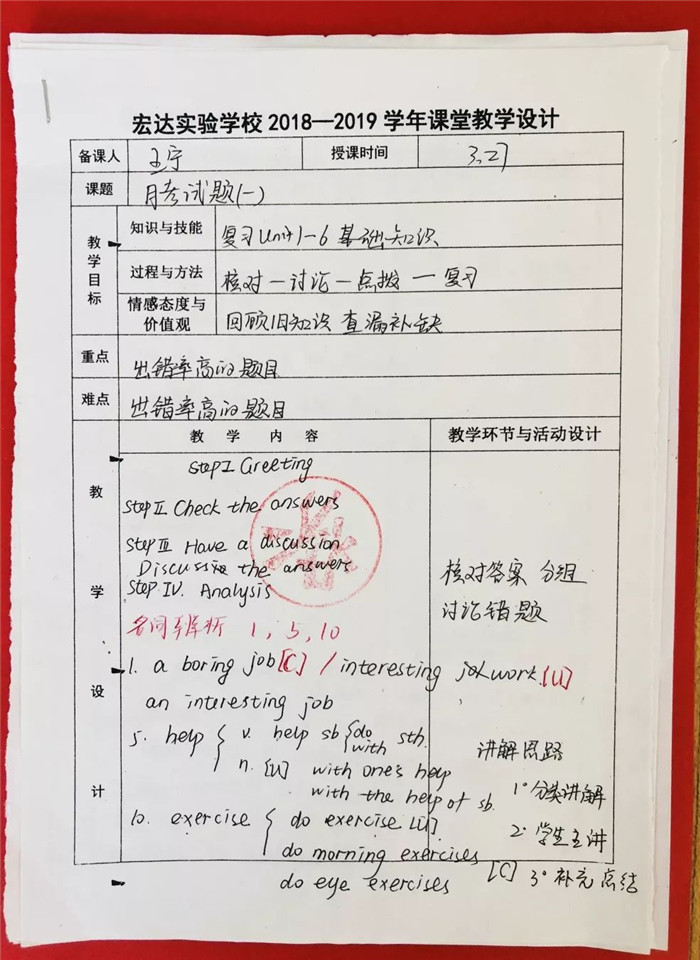 宏达实验学校 2018—2019 学年课堂教学设计
备课人 王宁 授课时间 3.27
课题 月考试题(一)
教学目标 知识与技能 复习Unit1-6基础知识
过程与方法 核对—讨论—点拨—复习
情感态度与价值观 回顾旧知识 查漏补缺
重点 出错率高的题目
难点 出错率高的题目
教学设计 教 学 内 容 教学环节与活动设计
Step I Greeting
Step II Check the answers
Step III Have a discussion
Discuss the answers
Step IV. Analysis
核对答案 分组
讨论错题
名词辨析 1, 5, 10
1. a boring job [C] / interesting work. [U]
an interesting job
5. help { v. help sb { do with sth.
n. [U] with one's help
with the help of sb.
10. exercise { do exercise [U]
do morning exercises
do eye exercises [C]
讲解思路
1° 分类讲解
2° 学生主讲
3° 补充总结